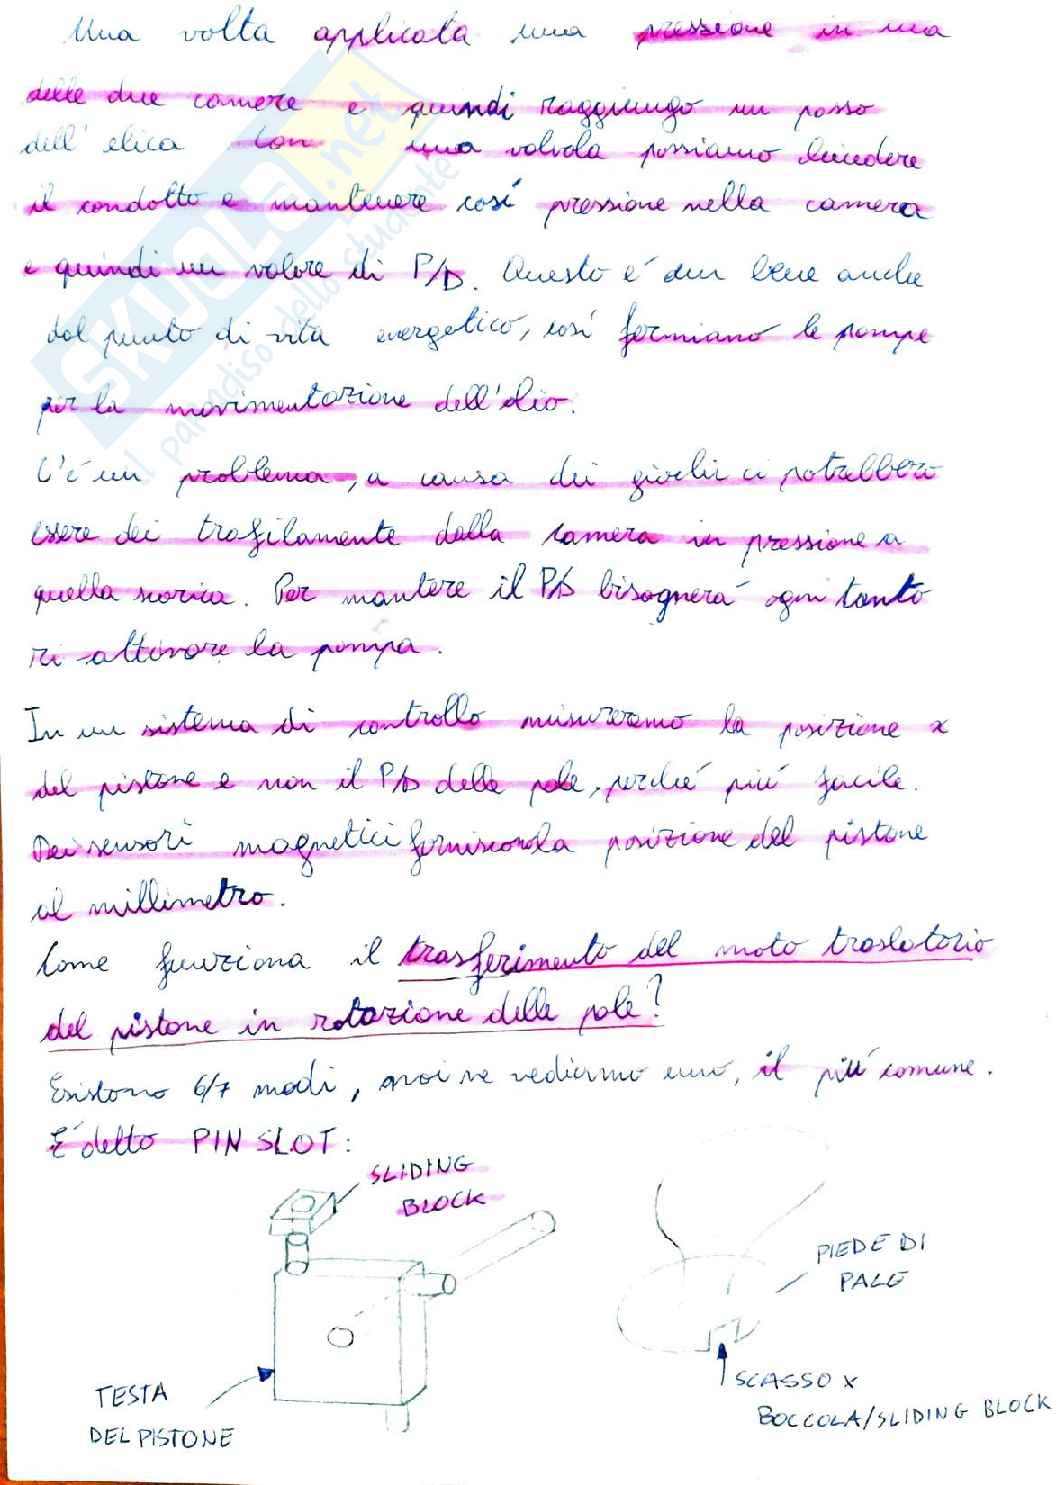 Una volta applicata una pressione in una
delle due camere e quindi raggiungo un passo
dell'elica con una valvola possiamo chiudere
il condotto e mantenere così pressione nella camera
e quindi un valore di P/D. Questo è un bene anche
dal punto di vita energetico, così fermiamo le pompe
per la movimentazione dell'olio.
C'è un problema, a causa dei giochi ci potrebbero
essere dei trafilamente dalla camera in pressione a
quella scarica. Per mantere il P/D bisognerà ogni tanto
ri-attivare la pompa.
In un sistema di controllo misureremo la posizione x
del pistone e non il P/D delle pale, perché più facile.
Dei sensori magnetici forniscono la posizione del pistone
al millimetro.
Come funziona il trasferimento del moto traslatorio
del pistone in rotazione delle pale?
Esistono 6/7 modi, noi ne vediamo uno, il più comune.
È detto PIN SLOT:
SLIDING
BLOCK
PIEDE DI
PALE
TESTA
DEL PISTONE
SCASSO X
BOCCOLA/SLIDING BLOCK
SKUOLA.net
il paradiso dello studente